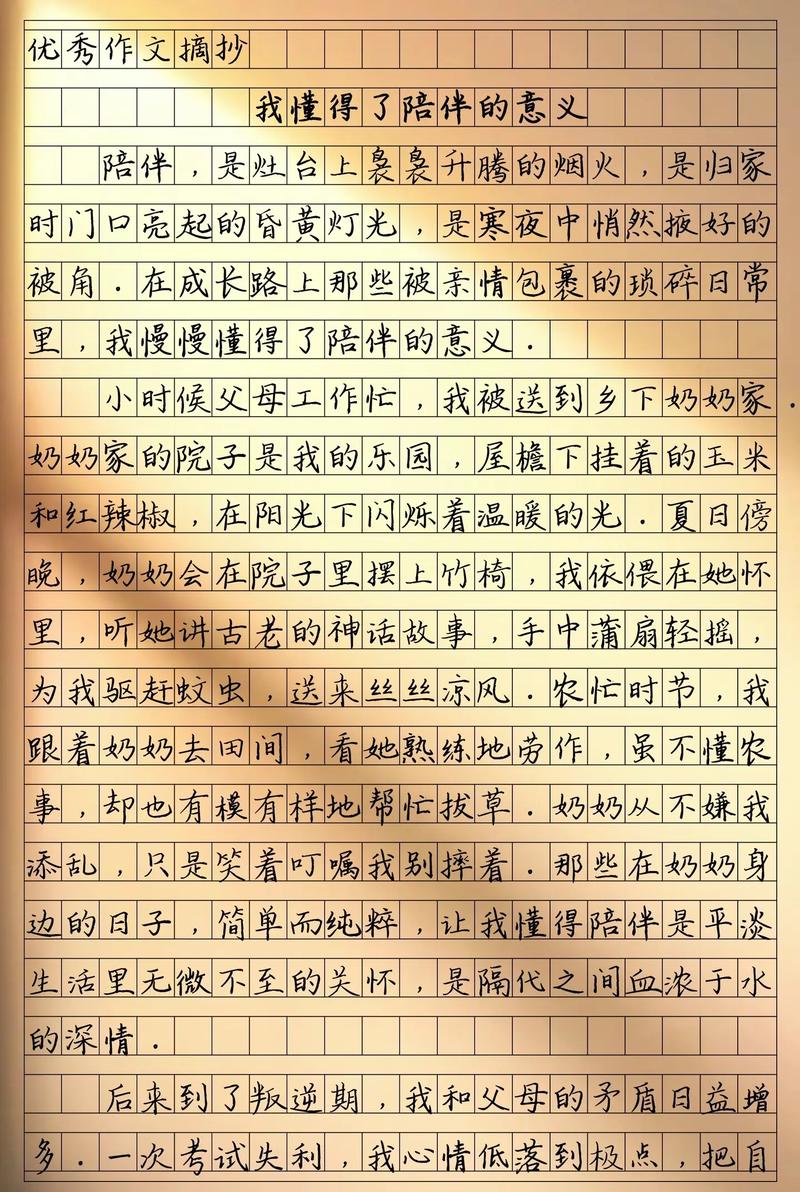 优秀作文摘抄
我懂得了陪伴的意义
陪伴，是灶台上袅袅升腾的烟火，是归家
时门口亮起的昏黄灯光，是寒夜中悄然掖好的
被角．在成长路上那些被亲情包裹的琐碎日常
里，我慢慢懂得了陪伴的意义．
小时候父母工作忙，我被送到乡下奶奶家．
奶奶家的院子是我的乐园，屋檐下挂着的玉米
和红辣椒，在阳光下闪烁着温暖的光．夏日傍
晚，奶奶会在院子里摆上竹椅，我依偎在她怀
里，听她讲古老的神话故事，手中蒲扇轻摇，
为我驱赶蚊虫，送来丝丝凉风．农忙时节，我
跟着奶奶去田间，看她熟练地劳作，虽不懂农
事，却也有模有样地帮忙拔草．奶奶从不嫌我
添乱，只是笑着叮嘱我别摔着．那些在奶奶身
边的日子，简单而纯粹，让我懂得陪伴是平淡
生活里无微不至的关怀，是隔代之间血浓于水
的深情．
后来到了叛逆期，我和父母的矛盾日益增
多．一次考试失利，我心情低落到极点，把自